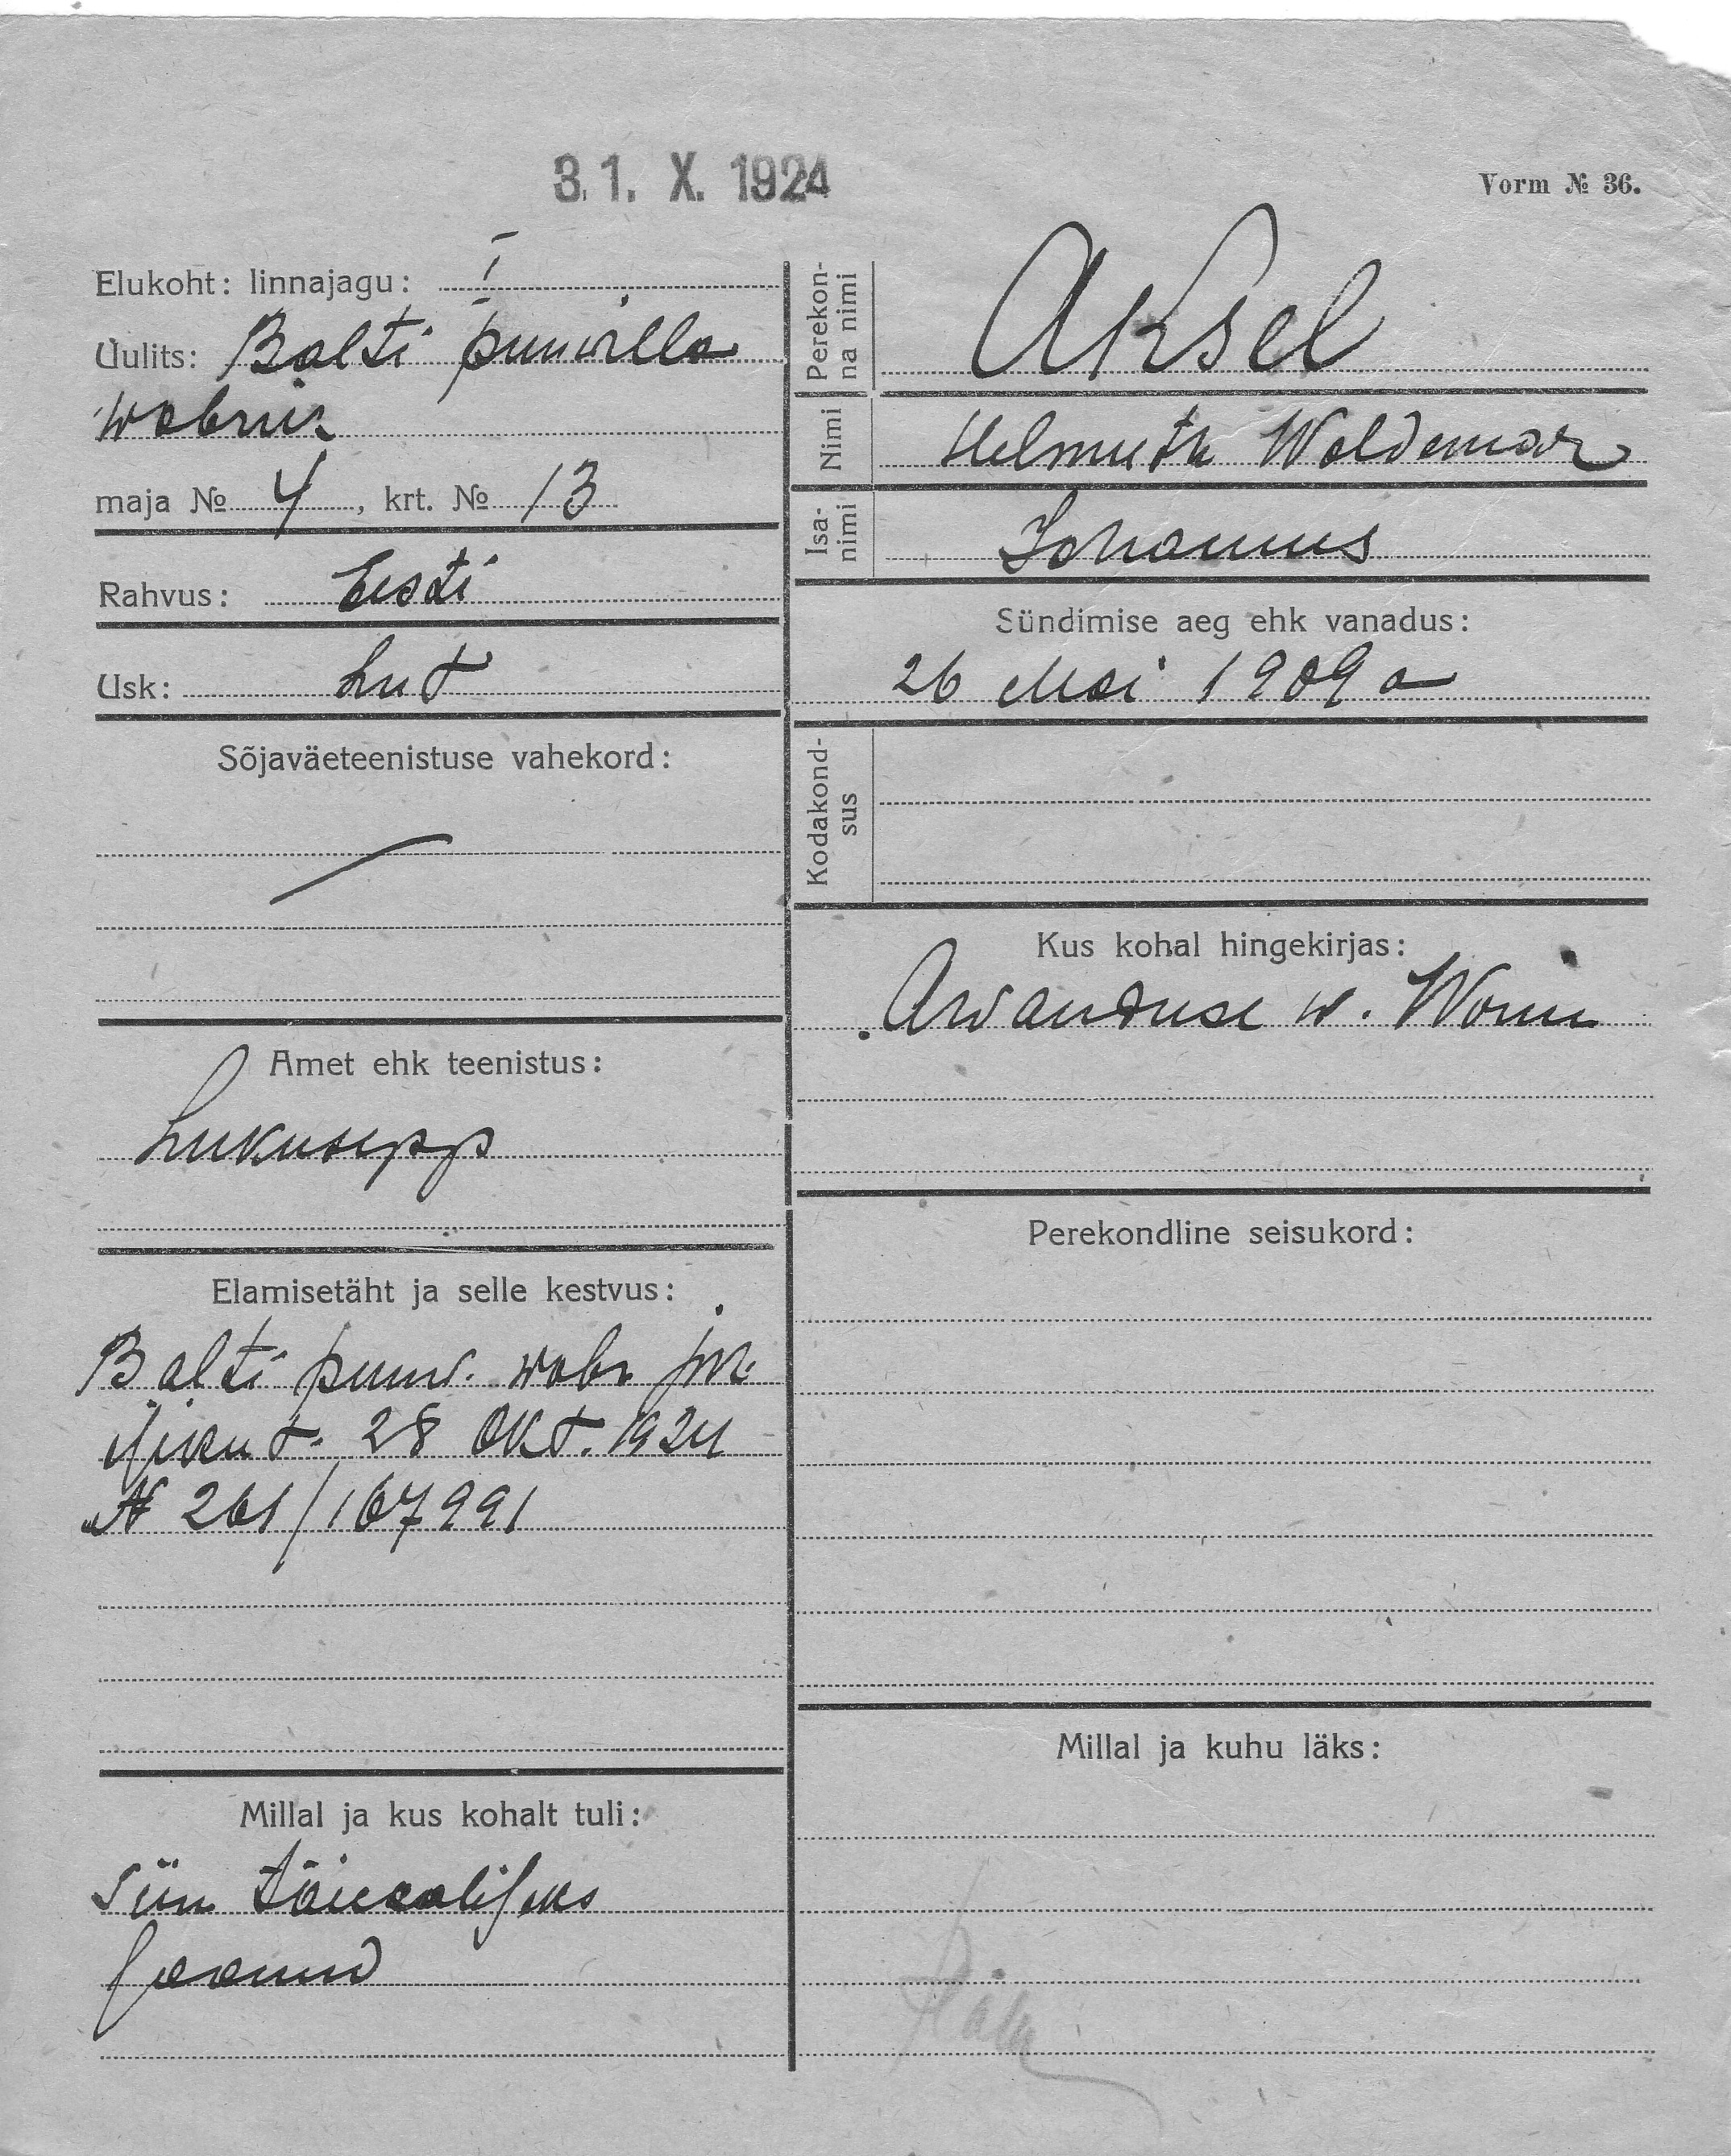 31. X. 1924
Vorm № 36.
Elukoht: linnajagu: I
Uulits: Balti puuvilla
wabrik
maja № 4, krt. № 13
Rahvus: Eesti
Usk: Lut
Sõjaväeteenistuse vahekord:
Amet ehk teenistus:
Lukusepp
Elamisetäht ja selle kestvus:
Balti puuv. wabr. jsk.
isikut. 28 Okt. 1924
№ 261/167991
Millal ja kus kohalt tuli:
Siin täiealiseks
saanud
Perekon-
na nimi
Aksel
Nimi Helmuth Woldemar
Isa-
nimi
Johannes
Sündimise aeg ehk vanadus:
26 Mai 1909 a
Kodakond-
sus
Kus kohal hingekirjas:
Awanduse w.
Perekondline seisukord:
Millal ja kuhu läks: